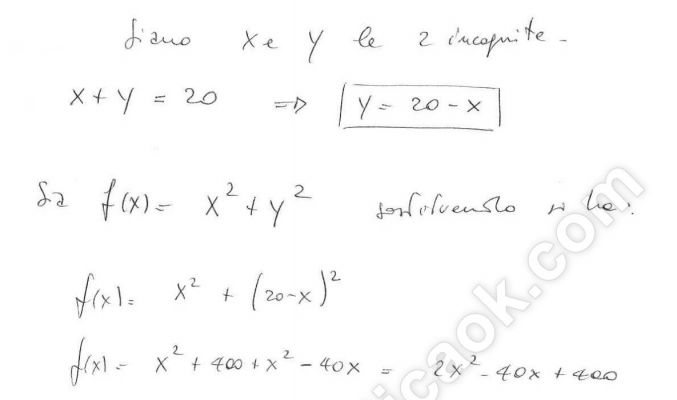 Siano x e y le 2 incognite.
x + y = 20 => y = 20 - x
Sia f(x) = x² + y² sostituendo si ha:
f(x) = x² + (20-x)²
f(x) = x² + 400 + x² - 40x = 2x² - 40x + 400
icaok.com